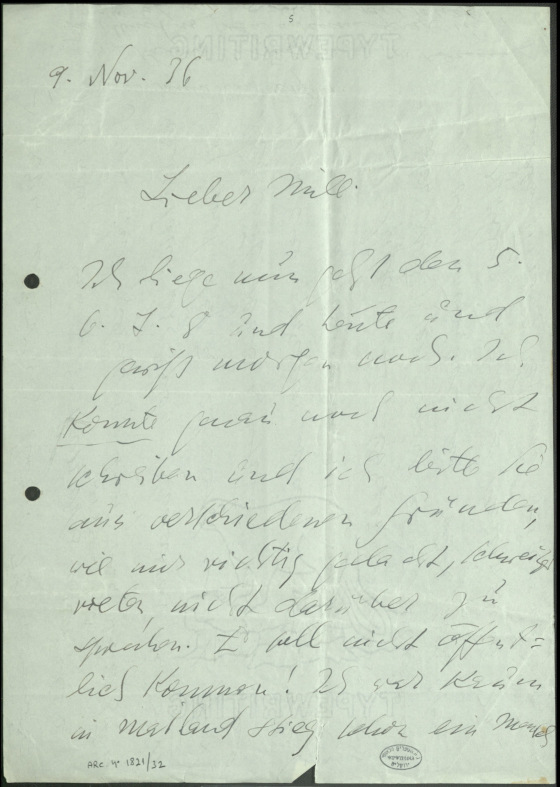 5
9. Nov. 36
Lieber Will.
Ich liege nun jetzt den 5.
6. 7. 8 und heute und
gewiß morgen noch. Ich
Konnte genau noch nicht
schreiben und ich bitte Sie
aus verschiedenen Gründen,
wie mir richtig
nicht darüber zu
sprechen. Es soll nicht öffent=
lich Kommen! Ich war kaum
in Mailand stieg schon ein
ARC. 4° 1821/32
TYPEWRITING
TYPEWRITING